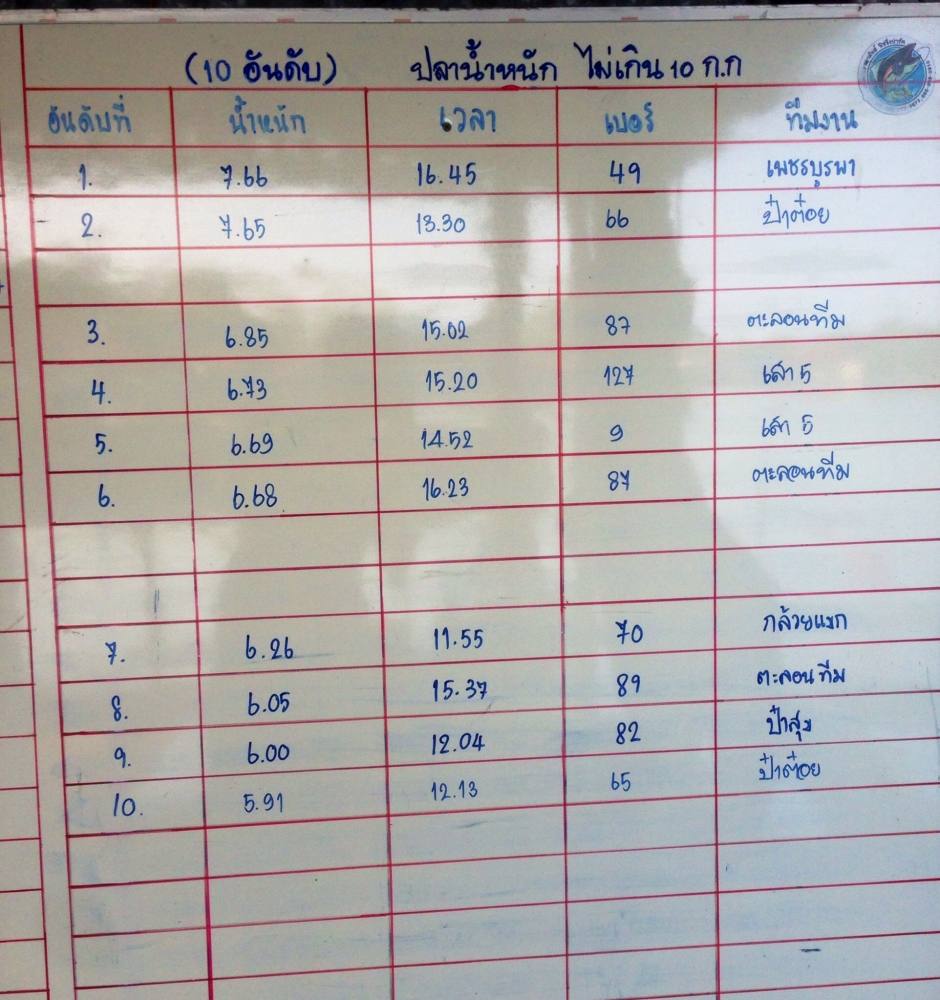 (10 อันดับ) ปลาน้ำหนัก ไม่เกิน 10 ก.ก
อันดับที่ น้ำหนัก เวลา เบอร์ ทีมงาน
1. 7.66 16.45 49 เพชรบูรพา
2. 7.65 13.30 66 ป๋าต๋อย
3. 6.85 15.02 87 ตะลอนทีม
4. 6.73 15.20 127 เสา 5
5. 6.69 14.52 9 เสา 5
6. 6.68 16.23 87 ตะลอนทีม
7. 6.26 11.55 70 กล้วยแขก
8. 6.05 15.37 89 ตะลอนทีม
9. 6.00 12.04 82 ป๋าสุ่ม
10. 5.91 12.13 65 ป๋าต๋อย